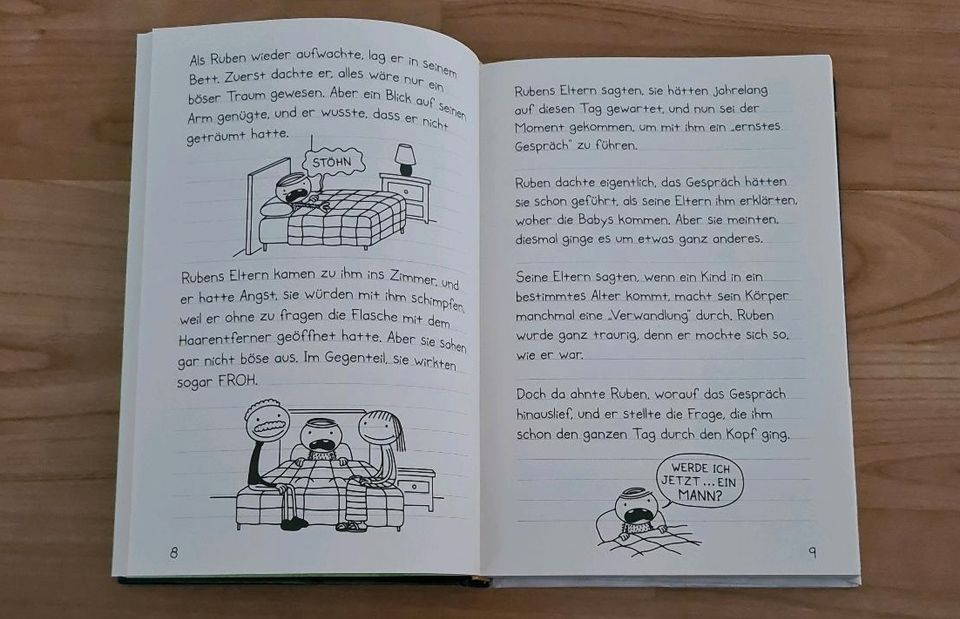 Als Ruben wieder aufwachte, lag er in seinem
Bett. Zuerst dachte er, alles wäre nur ein
böser Traum gewesen. Aber ein Blick auf seinen
Arm genügte, und er wusste, dass er nicht
geträumt hatte.
STÖHN
Rubens Eltern kamen zu ihm ins Zimmer, und
er hatte Angst, sie würden mit ihm schimpfen,
weil er ohne zu fragen die Flasche mit dem
Haarentferner geöffnet hatte. Aber sie sahen
gar nicht böse aus. Im Gegenteil, sie wirkten
sogar FROH.
8
Rubens Eltern sagten, sie hätten jahrelang
auf diesen Tag gewartet, und nun sei der
Moment gekommen, um mit ihm ein „ernstes
Gespräch" zu führen.
Ruben dachte eigentlich, das Gespräch hätten
sie schon geführt, als seine Eltern ihm erklärten,
woher die Babys kommen. Aber sie meinten,
diesmal ginge es um etwas ganz anderes.
Seine Eltern sagten, wenn ein Kind in ein
bestimmtes Alter kommt, macht sein Körper
manchmal eine „Verwandlung" durch. Ruben
wurde ganz traurig, denn er mochte sich so,
wie er war.
Doch da ahnte Ruben, worauf das Gespräch
hinauslief, und er stellte die Frage, die ihm
schon den ganzen Tag durch den Kopf ging.
WERDE ICH
JETZT ... EIN
MANN?
9